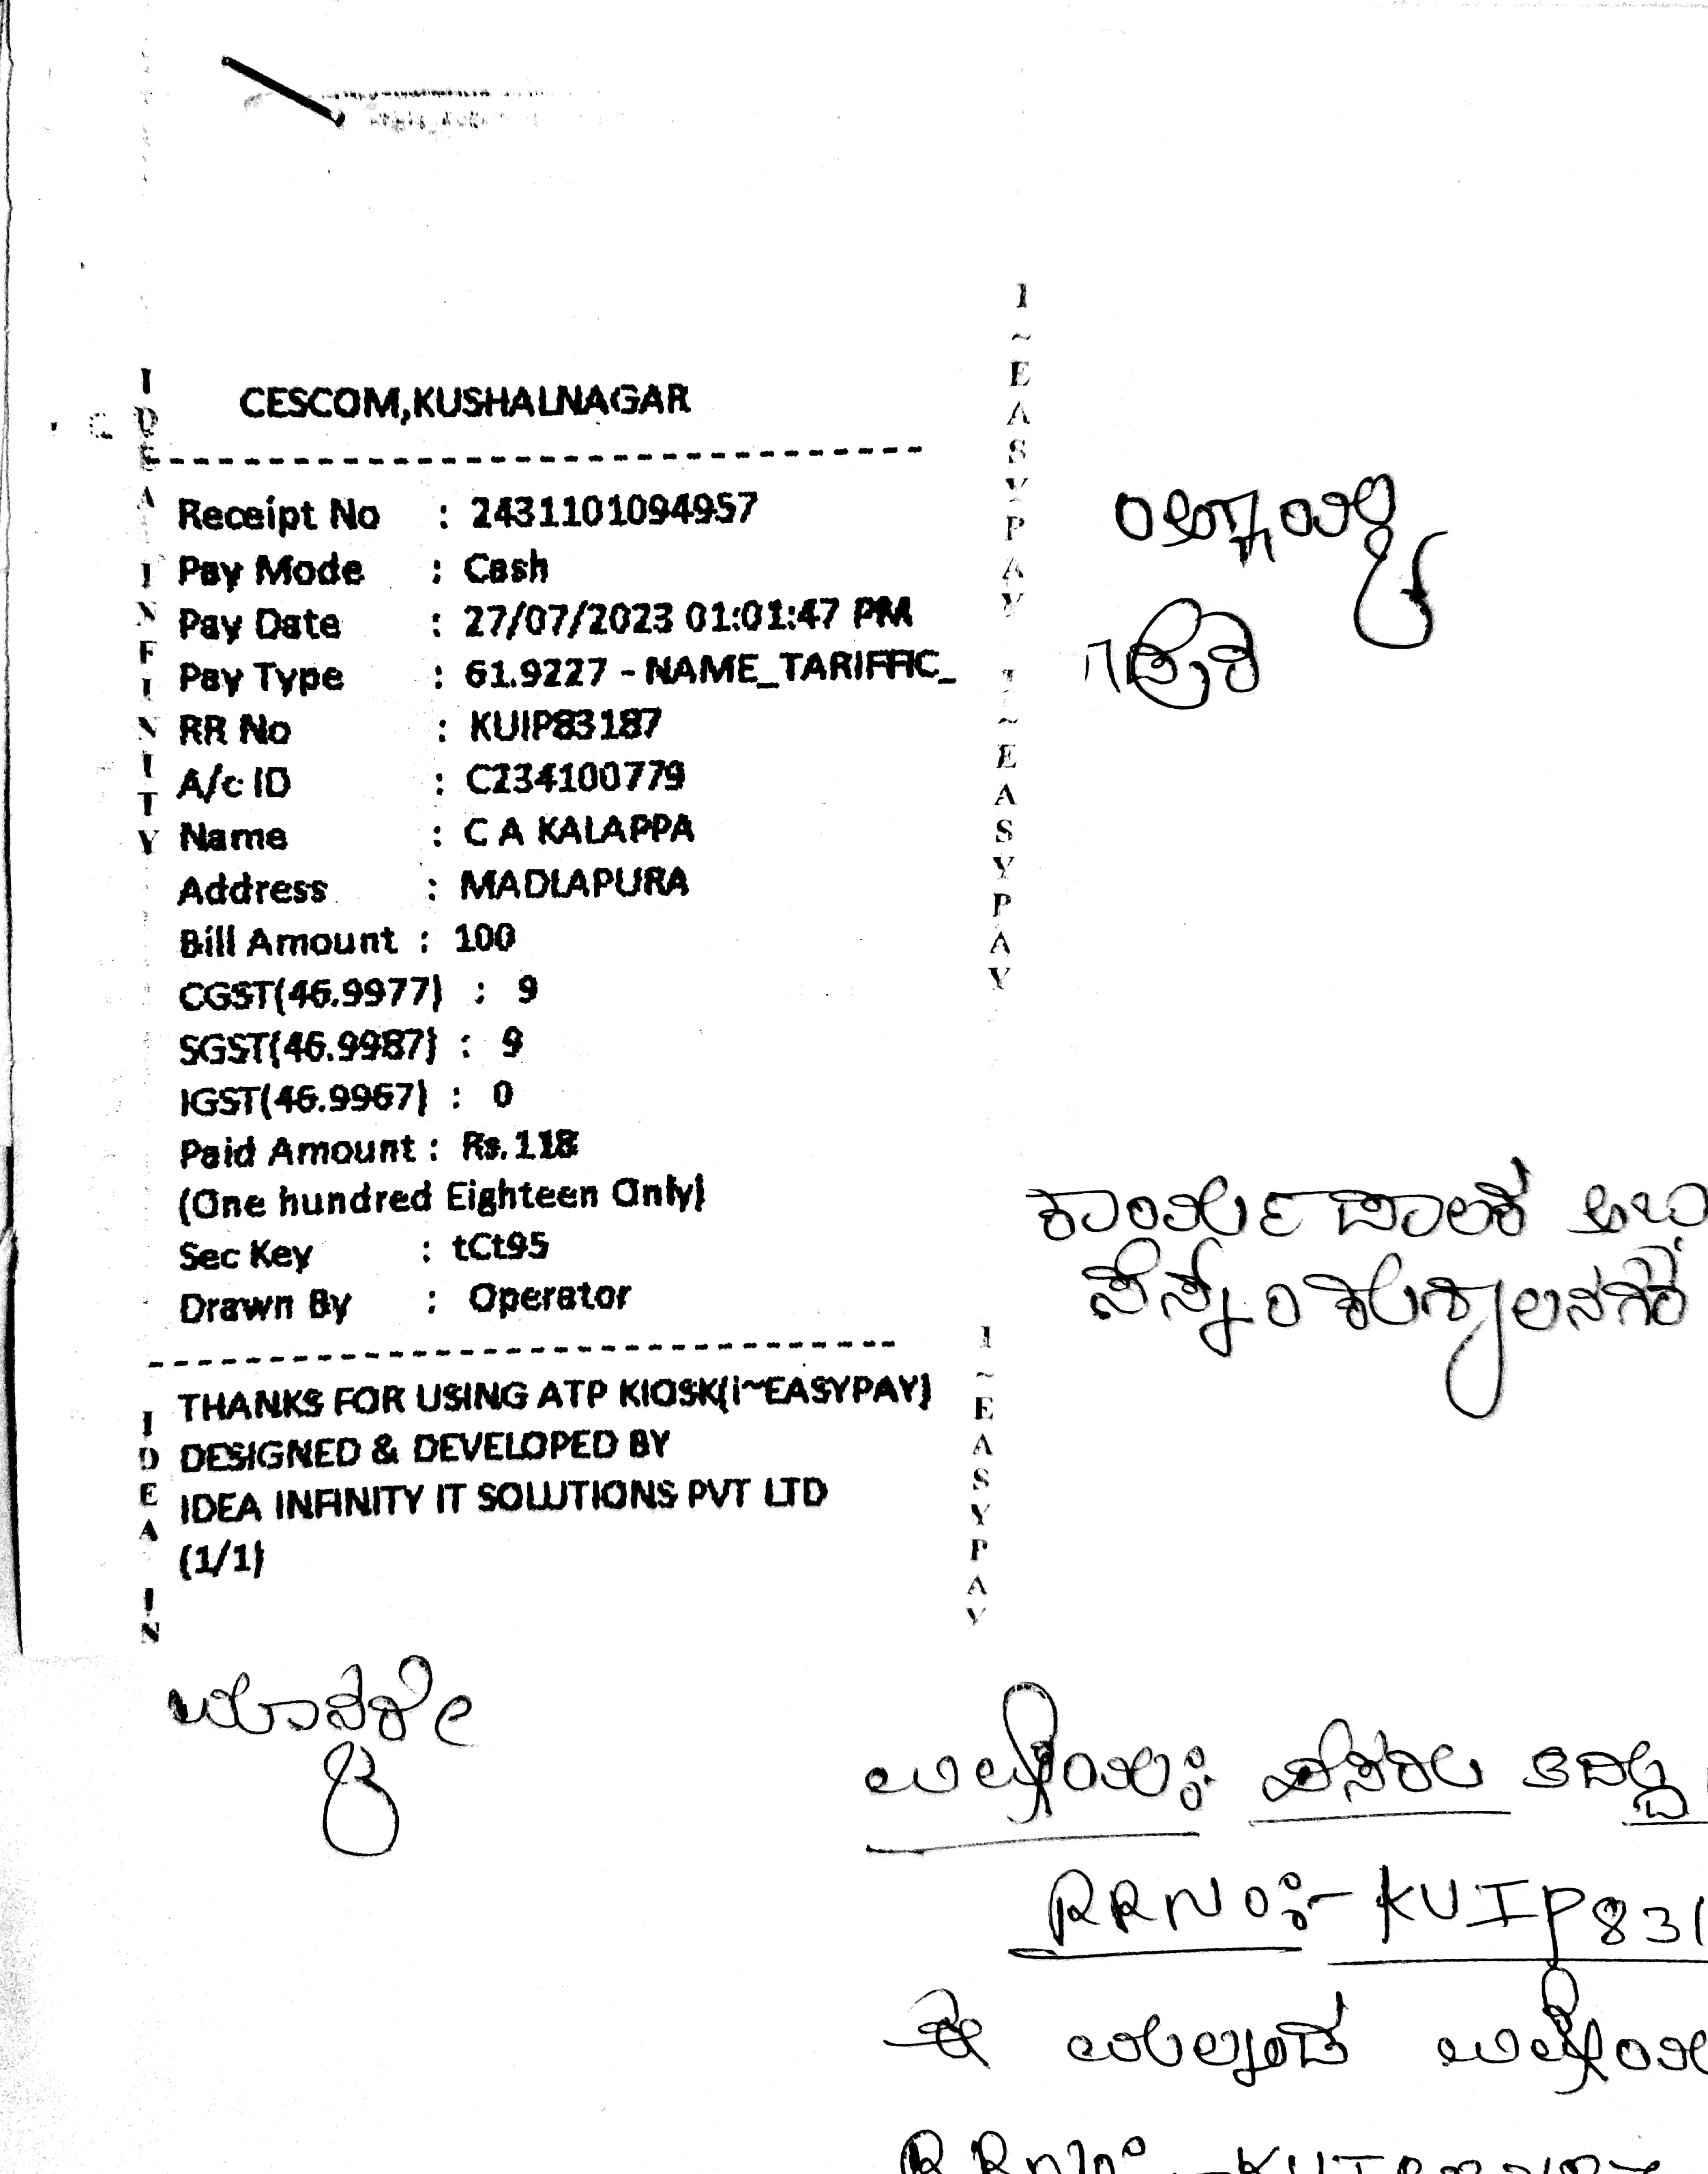 CESCOM,KUSHALNAGAR
Receipt No : 2431101094957
Pay Mode : Cash
Pay Date : 27/07/2023 01:01:47 PM
Pay Type : 61.9227 - NAME_TARIFFIC_
RR No : KUIP83187
A/c ID : C234100779
Name : C A KALAPPA
Address : MADLAPURA
Bill Amount : 100
CGST(46.9977) : 9
SGST(46.9987) : 9
IGST(46.9967) : 0
Paid Amount : Rs.118
(One hundred Eighteen Only)
Sec Key : tCt95
Drawn By : Operator
THANKS FOR USING ATP KIOSK(i~EASYPAY)
DESIGNED & DEVELOPED BY
IDEA INFINITY IT SOLUTIONS PVT LTD
(1/1)
IDEA INFINITY
IDEA IN
1~EASYPAY 1~EASYPAY
1~EASYPAY
ಕಾರ್ಯ ಪಾಲಕ
ಸೆಸ್ಕಾಂ ಕುಶಾಲನಗರ
ಮಾನ್ಯರೇ
ವಿಷಯ: ಹೆಸರು
RRNO:- KUIP831
ಈ ಮೇಲ್ಕಂಡ ವಿಷಯ